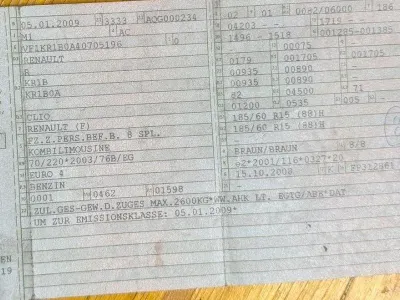 05.01.2009 3333 AQG000234
M1 AC
VF1KR1B0A40705196 0
RENAULT
R
KR1B
KR1B0A
CLIO
RENAULT (F)
FZ.Z.PERS.BEF.B. 8 SPL.
KOMBILIMOUSINE
70/220*2003/76B/EG
EURO 4
BENZIN
0001 0462 01598
ZUL.GES-GEW.D.ZUGES MAX.2600KG*WW.AHK LT. EGTG/ABE*DAT
UM ZUR EMISSIONSKLASSE: 05.01.2009*
02 01 0082/06000 186
04203 - 1719 -
1496 - 1518 001285-001385
00075
0179 001705 001705
00935 00890
00935 00890
82 04500 71
01200 0535 005
185/60 R15 (88)H
185/60 R15 (88)H
BRAUN/BRAUN 8/8
e2*2001/116*0327*20
15.10.2008 K
EN
19